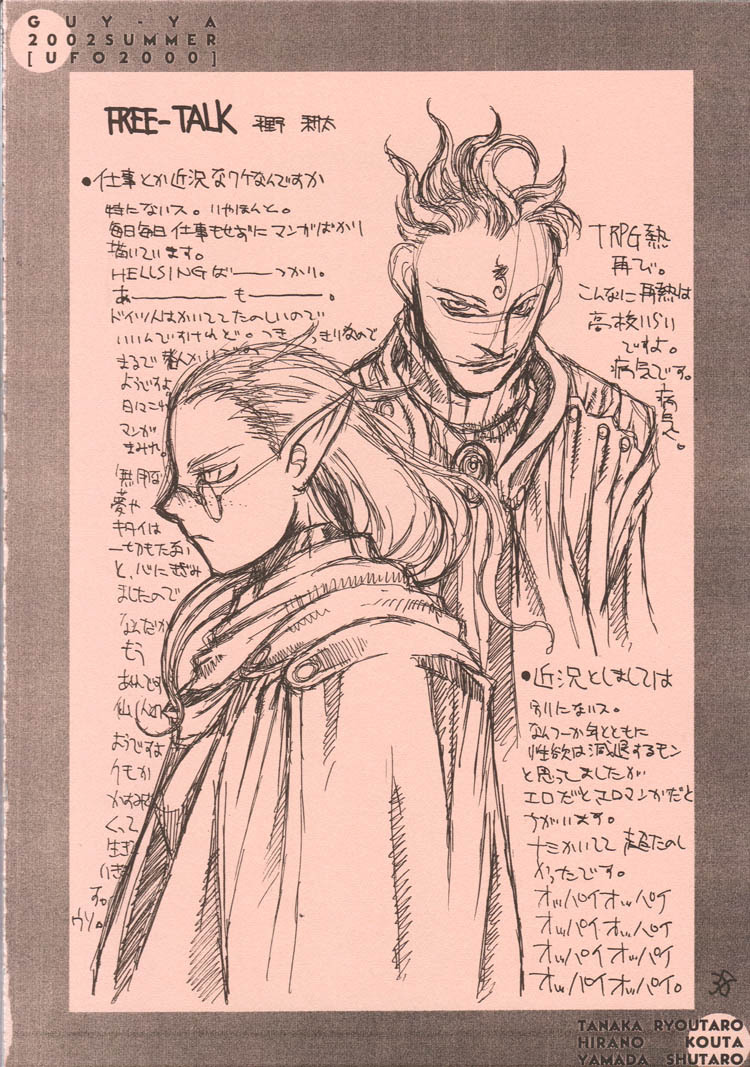 GUY-YA
2002SUMMER
[UFO2000]
FREE-TALK 平野 耕太
●仕事とか近況なワケなんですか
特にないス。いやほんと。
毎日毎日仕事もせずにマンガばかり
描いています。
HELLSINGばーーっかり。
あーーーもーーー。
ドイツ人はかいててたのしいので
いいんですけれど。つきっきりなので
まるで
ようですよ
日々これ
マンガ
まみれ。
無用な
夢や
キタイは
一切もたない
と、心にきざみ
ましたので
なんだか
もう
あれです
仙人の
ようですよ
クモか
かすみ
くって
生き
いき
す。
ウソ。
TRPG熱
再び。
こんなに再熱は
高校いらい
ですよ。
病気です。
病気。
●近況としましては
別にないス。
なんつーか年とともに
性欲は減退するモン
と思ってましたが
エロだとエロマンガだと
ちがいます。
ナミかいてて超たのし
かったです。
オッパイオッパイ
オッパイオッパイ
オッパイオッパイ
オッパイオッパイ。
38
TANAKA RYOUTARO
HIRANO KOUTA
YAMADA SHUTARO